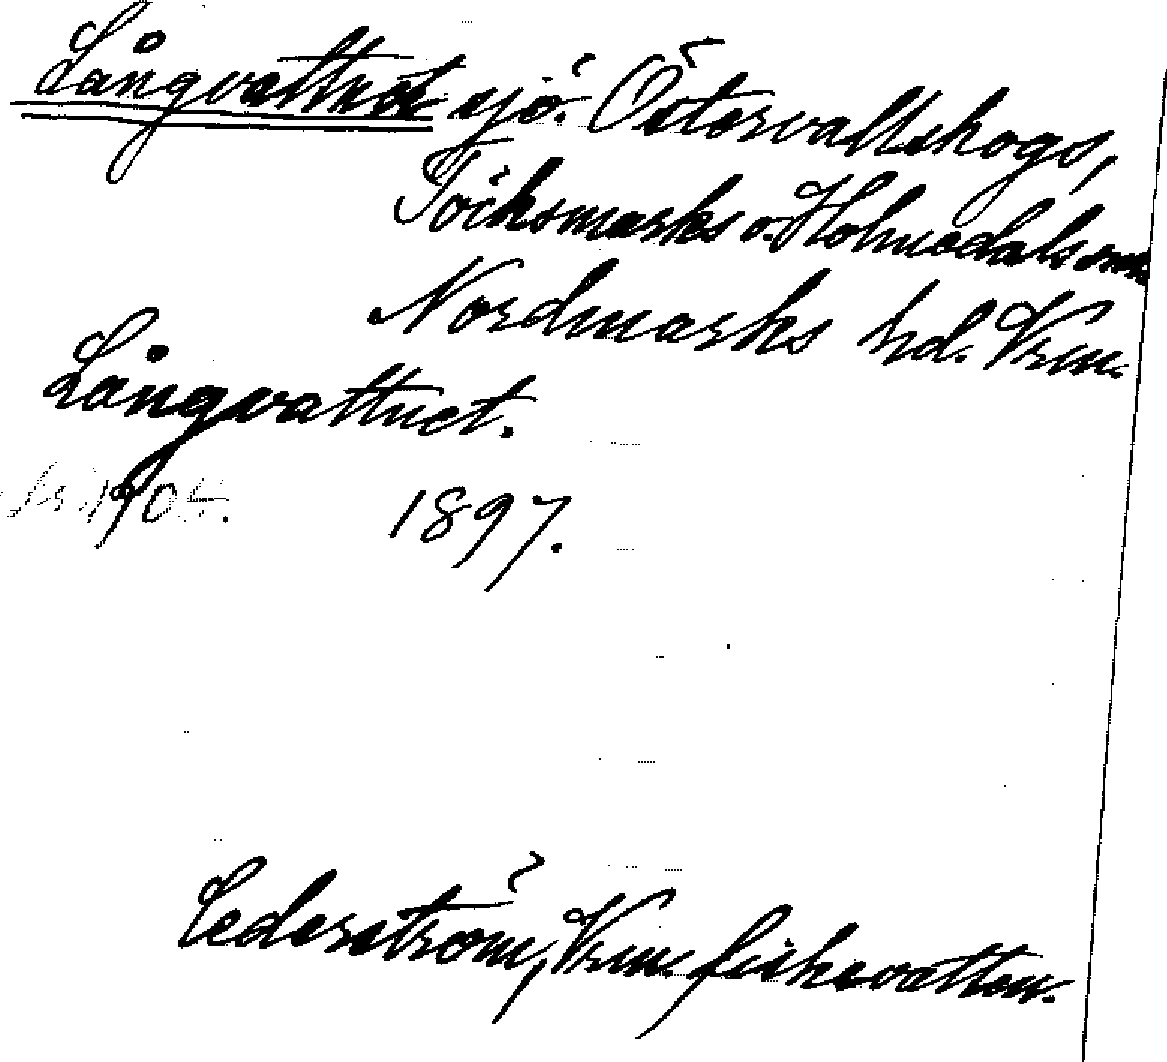 Långvattnet sjö. Östervallskogs,
Töcksmarks o. Holmedals snr
Nordmarks hd. Vrm.
Långvattnet.
1905. 1897.
Cederström, Vrm. fiskevatten.